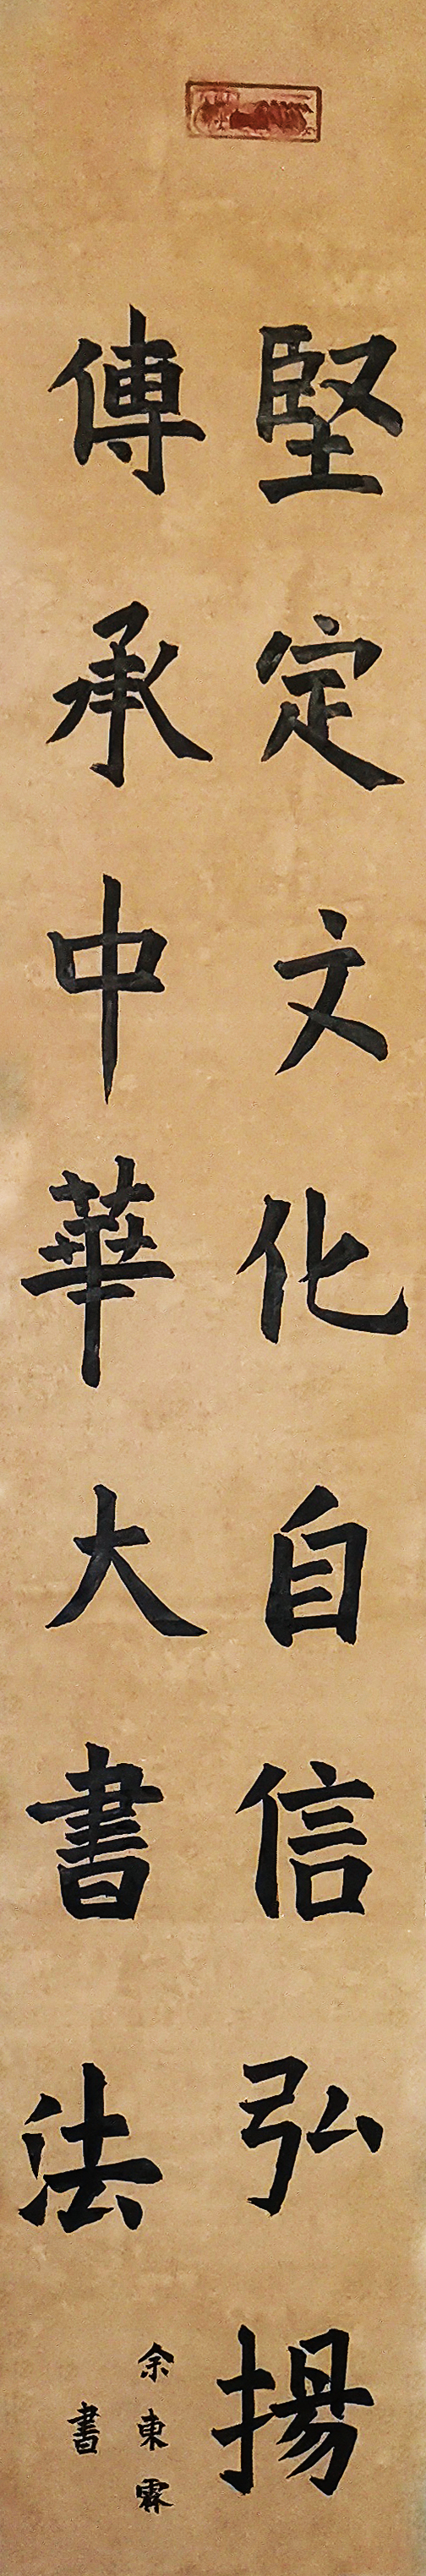 堅定文化自信弘揚
傳承中華大書法
余東霖
書